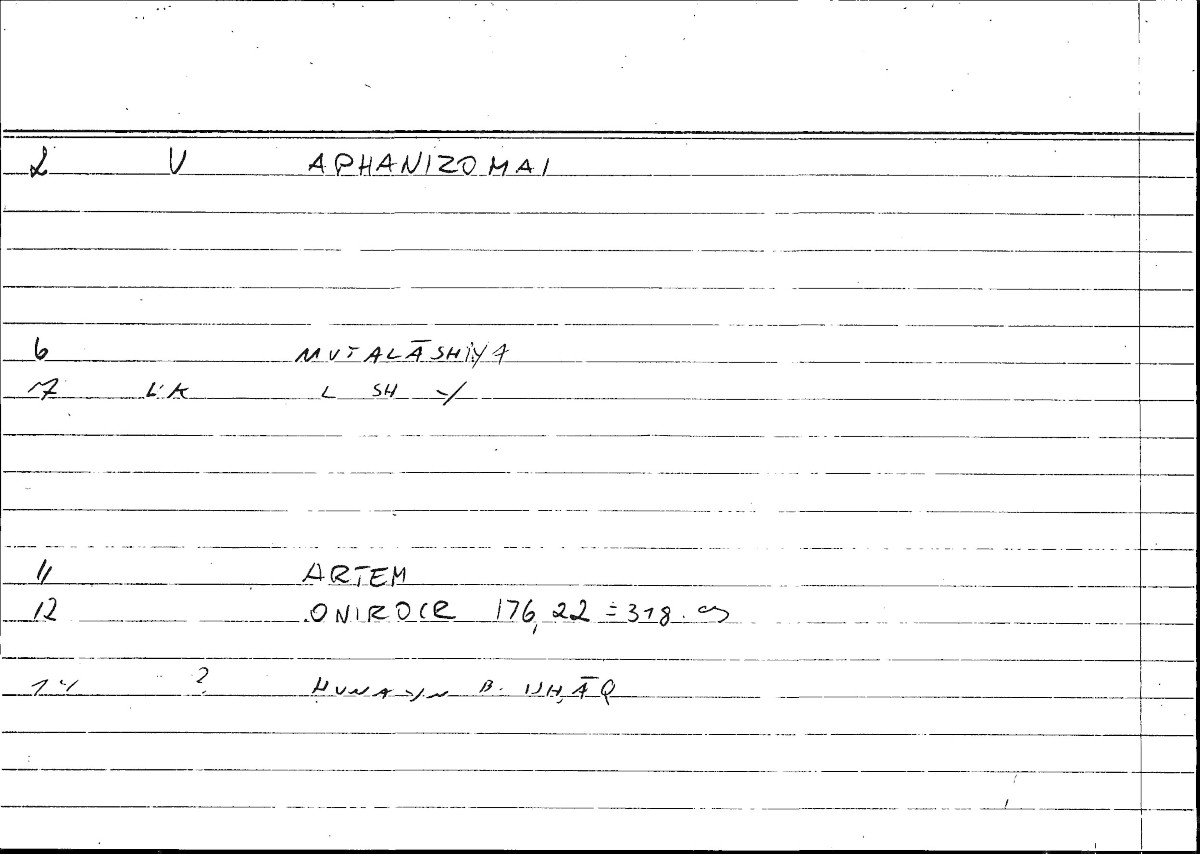 2 V APHANIZOMAI
6 MUTALĀSHIYA
7 L-K L SH Y
11 ARTEM
12 ONIROCR 176,22 = 318.
14 ? ḤUNAYN B. ISḤĀQ